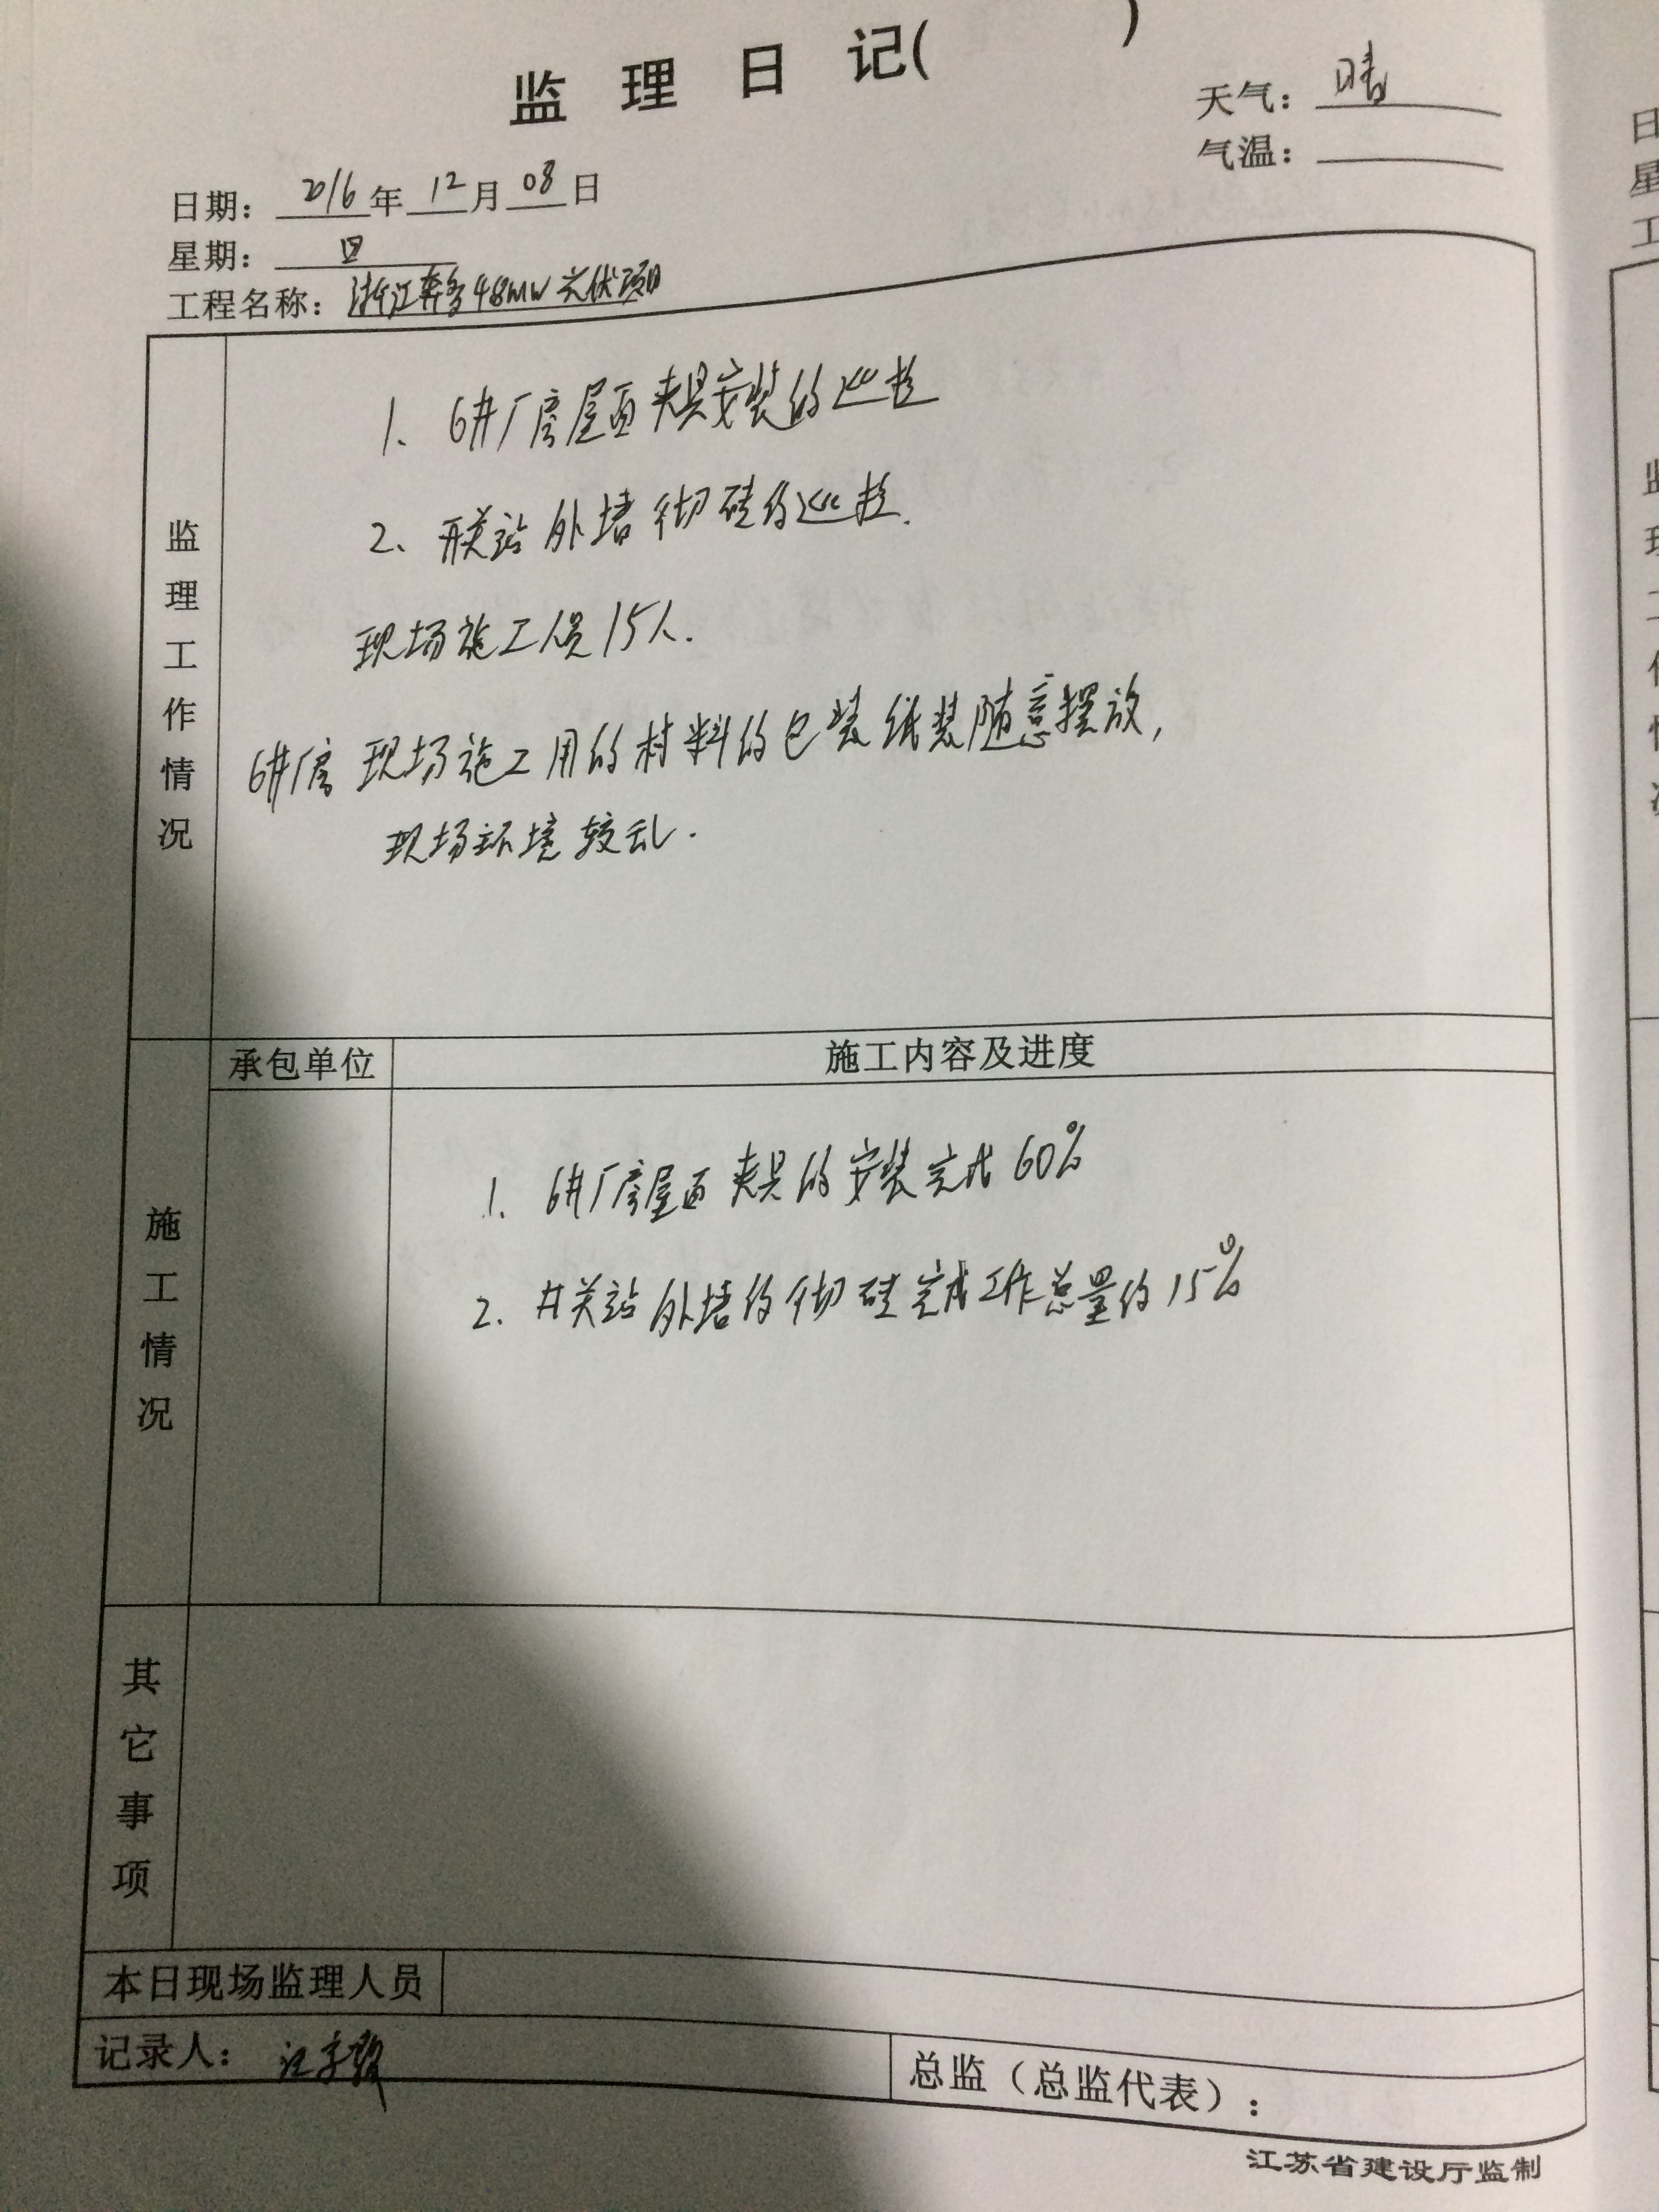 监理日记( )
天气：晴
气温：
日期：2016年12月08日
星期：四
工程名称：浙江奔多48MW光伏项目
监理工作情况
1、6#厂房屋面夹具安装的巡检
2、开关站外墙彻砖的巡检.
现场施工人员15人.
6#厂房 现场施工用的材料的包装纸装随意摆放，
现场环境较乱.
承包单位 施工内容及进度
施工情况
1. 6#厂房屋面夹具的安装完成60%
2. 开关站外墙的彻砖完成工作总量的15%
其它事项
本日现场监理人员
记录人：汪
总监（总监代表）：
江苏省建设厅监制
日
星
工